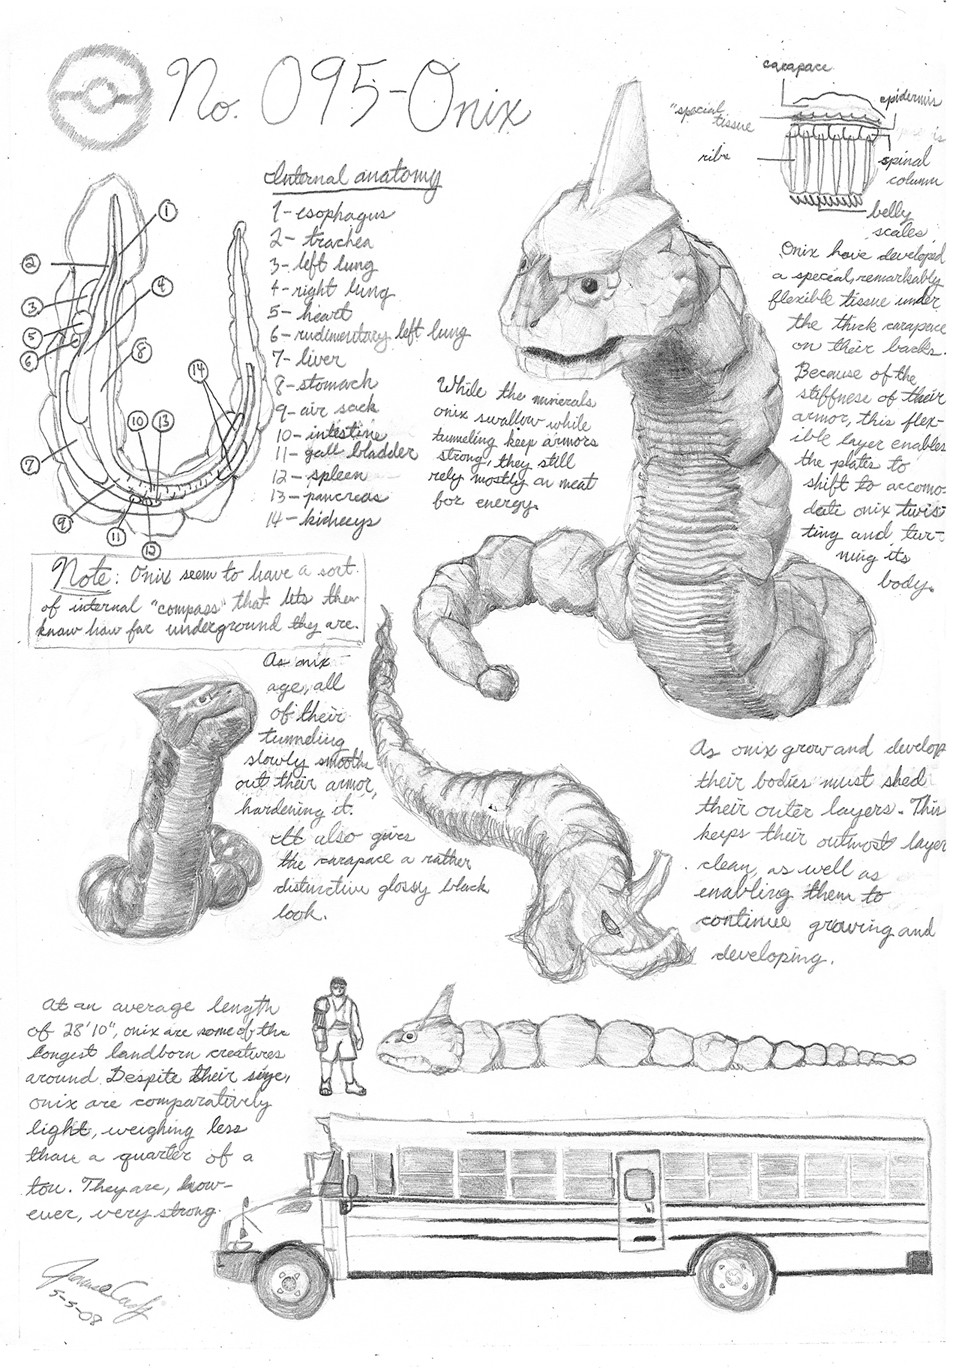 No. 095-Onix
Internal anatomy
1-esophagus
2-trachea
3-left lung
4-right lung
5-heart
6-rudimentary left lung
7-liver
8-stomach
9-air sack
10-intestine
11-gall bladder
12-spleen
13-pancreas
14-kidneys
1
2
3
4
5
6
7
8
9
10
11
12
13
14
carapace
epidermis
"special
tissue
ribs
spinal
column
belly
scales
Onix have developed
a special, remarkably
flexible tissue under
the thick carapace
on their backs.
Because of the
stiffness of their
armor, this flex-
ible layer enables
the plates to
shift to accomo-
date onix twis-
ting and tur-
ning its
body.
While the minerals
onix swallow while
tunneling keep armors
strong, they still
rely mostly on meat
for energy.
Note: Onix seem to have a sort
of internal "compass" that lets them
know how far underground they are.
As onix
age, all
of their
tunneling
slowly smooths
out their armor,
hardening it.
It also gives
the carapace a rather
distinctive glossy black
look.
As onix grow and develop
their bodies must shed
their outer layers. This
keeps their outmost layer
clean, as well as
enabling them to
continue growing and
developing.
At an average length
of 28'10", onix are some of the
longest landborn creatures
around. Despite their size,
onix are comparatively
light, weighing less
than a quarter of a
ton. They are, how-
ever, very strong.
5-5-08